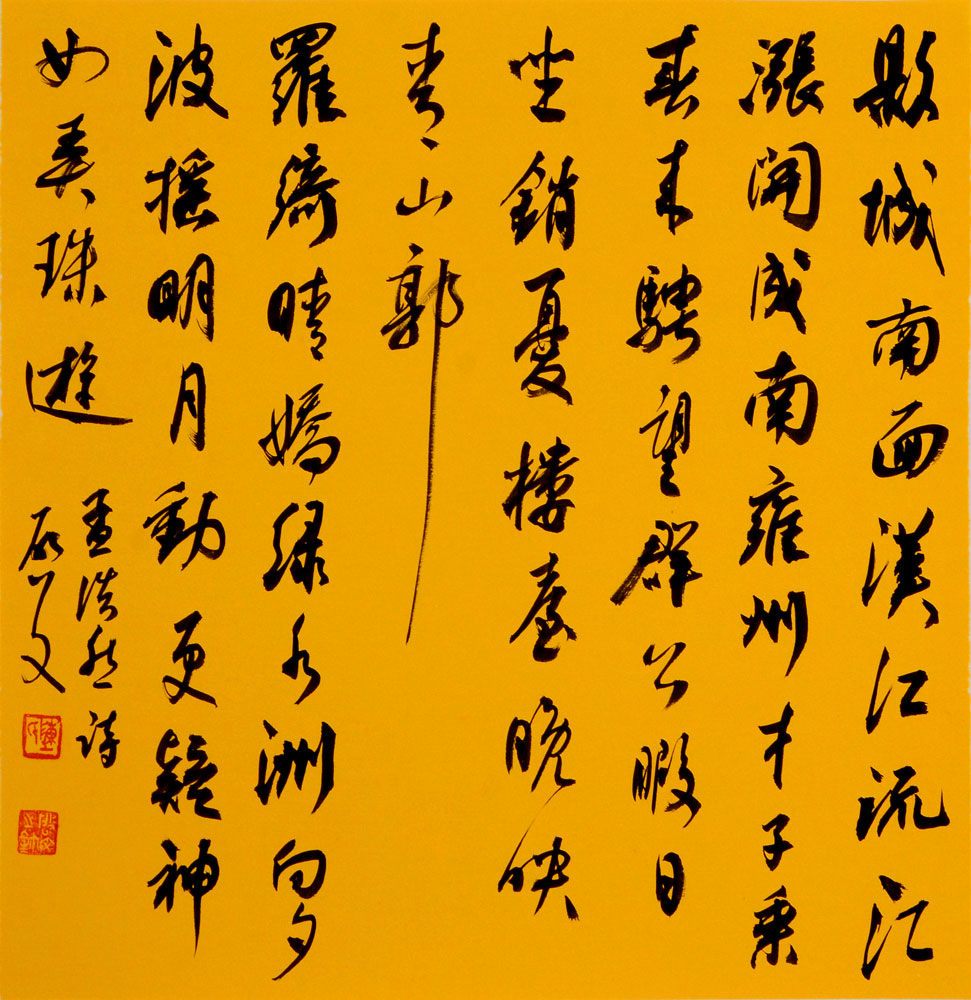 縣城南面漢江流江
漲開成南雍州才子乘
春来騁望群公暇日
坐銷憂樓臺晚映
青山郭
羅綺晴嬌綠水洲向夕
波摇明月動更疑神
女弄珠遊
孟浩然詩